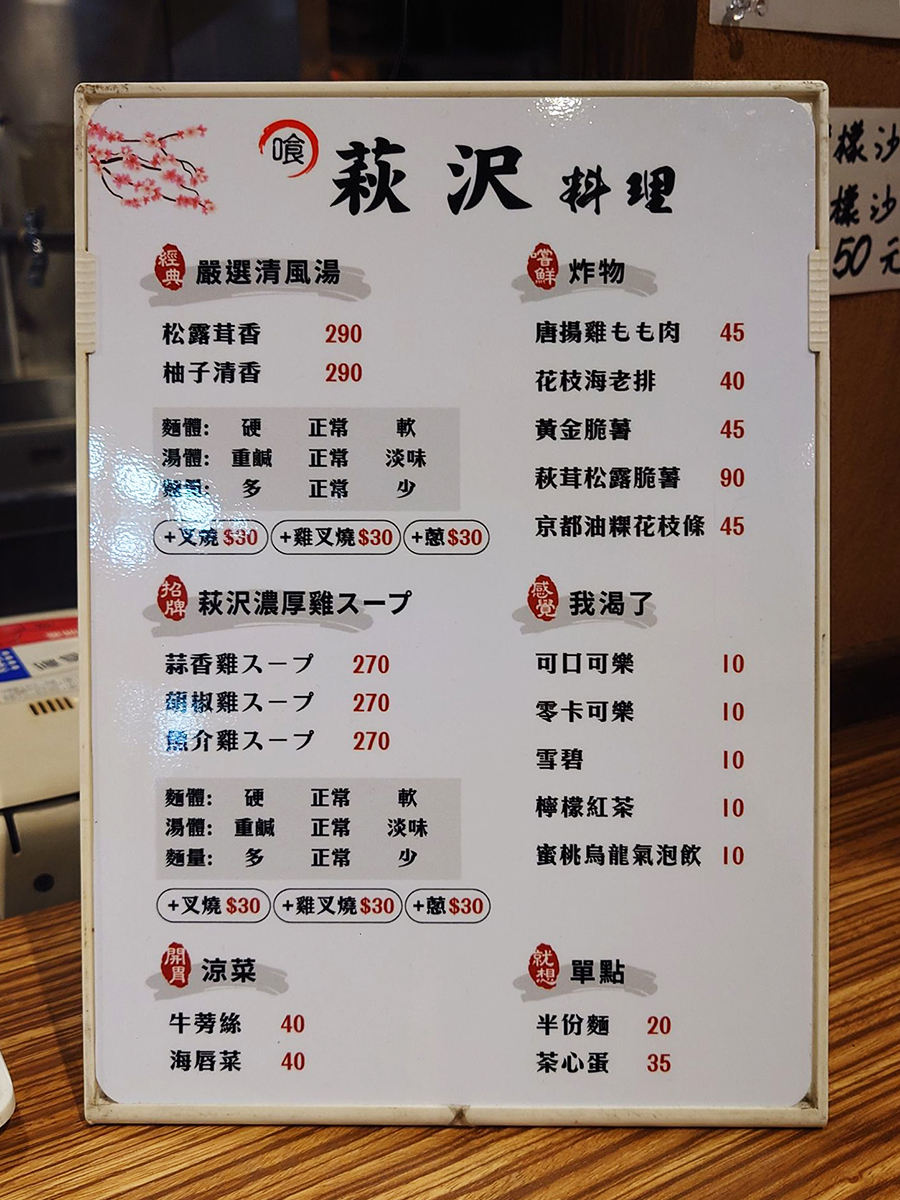 喰
萩沢 料理
經典 嚴選清風湯
松露茸香 290
柚子清香 290
麵體: 硬 正常 軟
湯體: 重鹹 正常 淡味
麵量: 多 正常 少
+叉燒 $30 +雞叉燒 $30 +蔥 $30
招牌 萩沢濃厚雞スープ
蒜香雞スープ 270
胡椒雞スープ 270
魚介雞スープ 270
麵體: 硬 正常 軟
湯體: 重鹹 正常 淡味
麵量: 多 正常 少
+叉燒 $30 +雞叉燒 $30 +蔥 $30
開胃 涼菜
牛蒡絲 40
海唇菜 40
嚐鮮 炸物
唐揚雞もも肉 45
花枝海老排 40
黃金脆薯 45
萩茸松露脆薯 90
京都油粿花枝條 45
感覺 我渴了
可口可樂 10
零卡可樂 10
雪碧 10
檸檬紅茶 10
蜜桃烏龍氣泡飲 10
就想 單點
半份麵 20
茶心蛋 35
檬沙
檬沙
50元